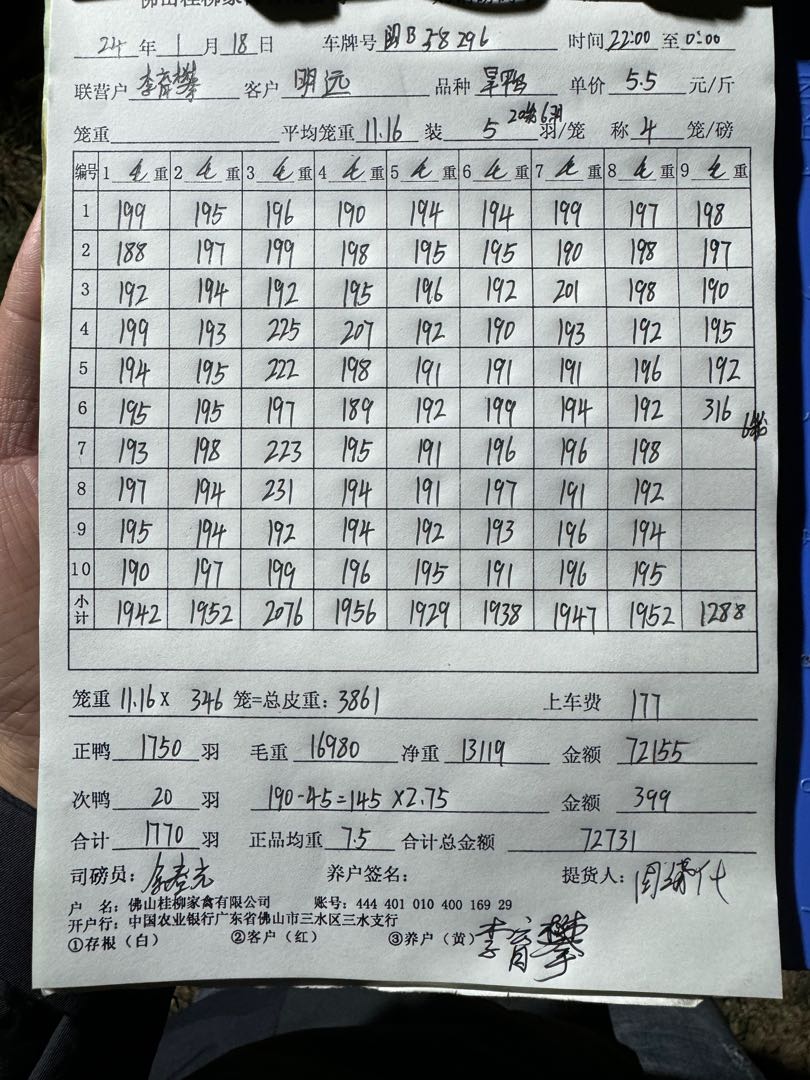 佛山桂柳家禽有限公司
24 年 1 月 18 日 车牌号 B58296 时间 22:00 至 0:00
联营户 李育攀 客户 明远 品种 旱鸭 单价 5.5 元/斤
笼重 平均笼重 11.16 装 5 20笼6羽 羽/笼 称 4 笼/磅
编号 1 毛重 2 毛重 3 毛重 4 毛重 5 毛重 6 毛重 7 毛重 8 毛重 9 毛重
1 199 195 196 190 194 194 199 197 198
2 188 197 199 198 195 195 190 198 197
3 192 194 192 195 196 192 201 198 190
4 199 193 225 207 192 190 193 192 195
5 194 195 222 198 191 191 191 196 192
6 195 195 197 189 192 199 194 192 316 6笼
7 193 198 223 195 191 196 196 198
8 197 194 231 194 191 197 191 192
9 195 194 192 194 192 193 196 194
10 190 197 199 196 195 191 196 195
小计 1942 1952 2076 1956 1929 1938 1947 1952 1288
笼重 11.16 X 346 笼=总皮重: 3861 上车费 177
正鸭 1750 羽 毛重 16980 净重 13119 金额 72155
次鸭 20 羽 190-45=145 X2.75 金额 399
合计 1770 羽 正品均重 7.5 合计总金额 72731
司磅员: 养户签名: 提货人:
户 名: 佛山桂柳家禽有限公司 账号: 444 401 010 400 169 29
开户行: 中国农业银行广东省佛山市三水区三水支行
①存根（白） ②客户（红） ③养户（黄） 李育攀